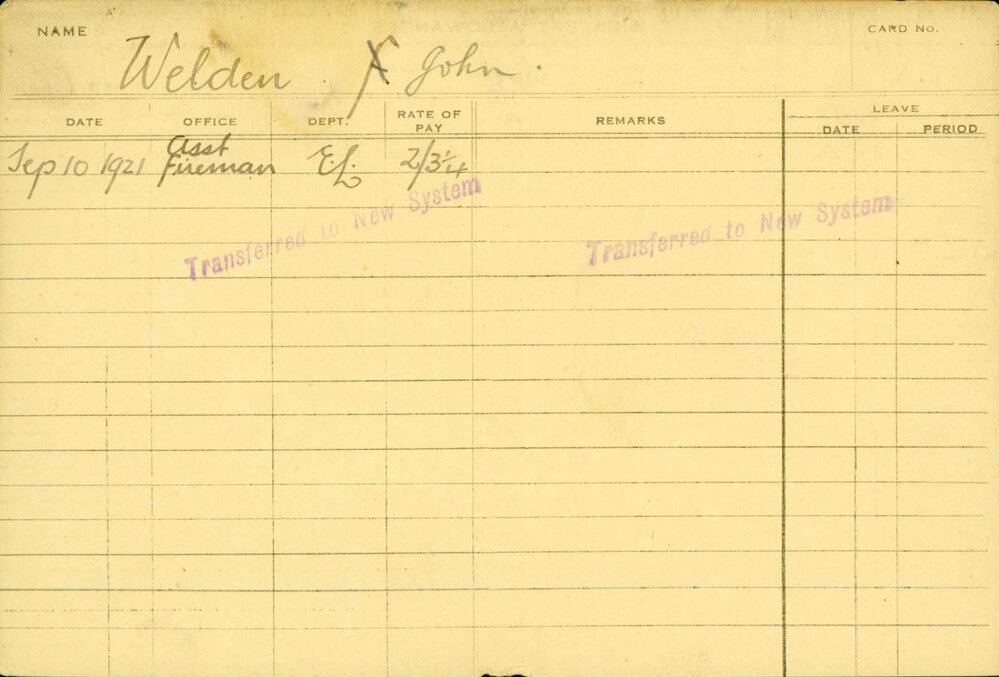 NAME
CARD No.
Welden X John .
DATE OFFICE DEPT. RATE OF PAY REMARKS LEAVE
DATE PERIOD
Asst
Sep 10 1921 Fireman E.L. 2/3¼
Transferred to New System
Transferred to New System